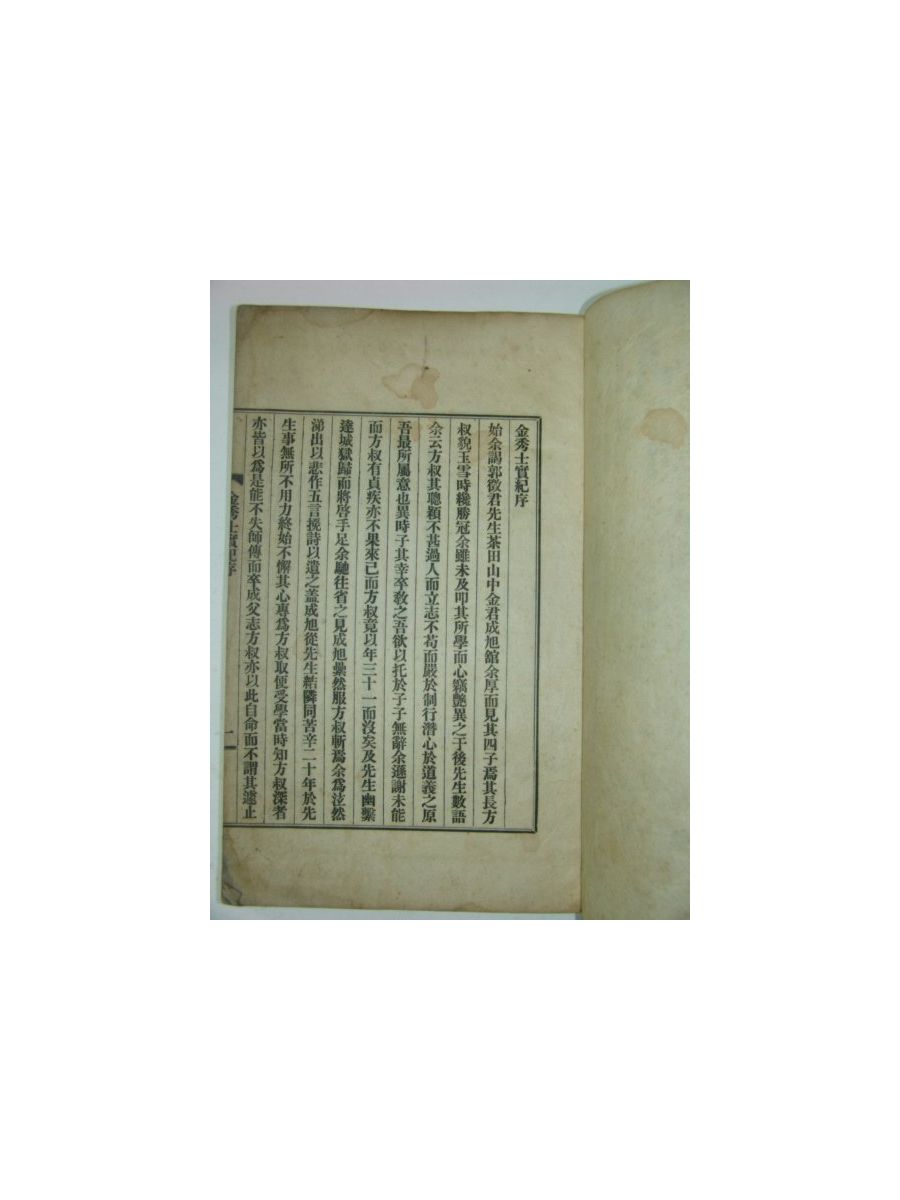 金秀士實紀序
始余謁郭徵君先生茶田山中金君成旭舘余厚而見其四子焉其長方
叔貌玉雪時纔勝冠余雖未及叩其所學而心竊艷異之于後先生數語
余云方叔其聰穎不甚過人而立志不苟而嚴於制行潛心於道義之原
吾最所屬意也異時子其幸卒敎之吾欲以托於子子無辭余遜謝未能
而方叔有貞疾亦不果來已而方叔竟以年三十一而沒矣及先生幽繫
達城獄歸而將啓手足余馳往省之見成旭纍然服方叔斬焉余爲泫然
涕出以悲作五言挽詩以遺之盖成旭從先生結隣同苦辛二十年於先
生事無所不用力終始不懈其心專爲方叔取便受學當時知方叔深者
亦皆以爲是能不失師傳而卒成父志方叔亦以此自命而不謂其遽止
金秀士實紀序
一